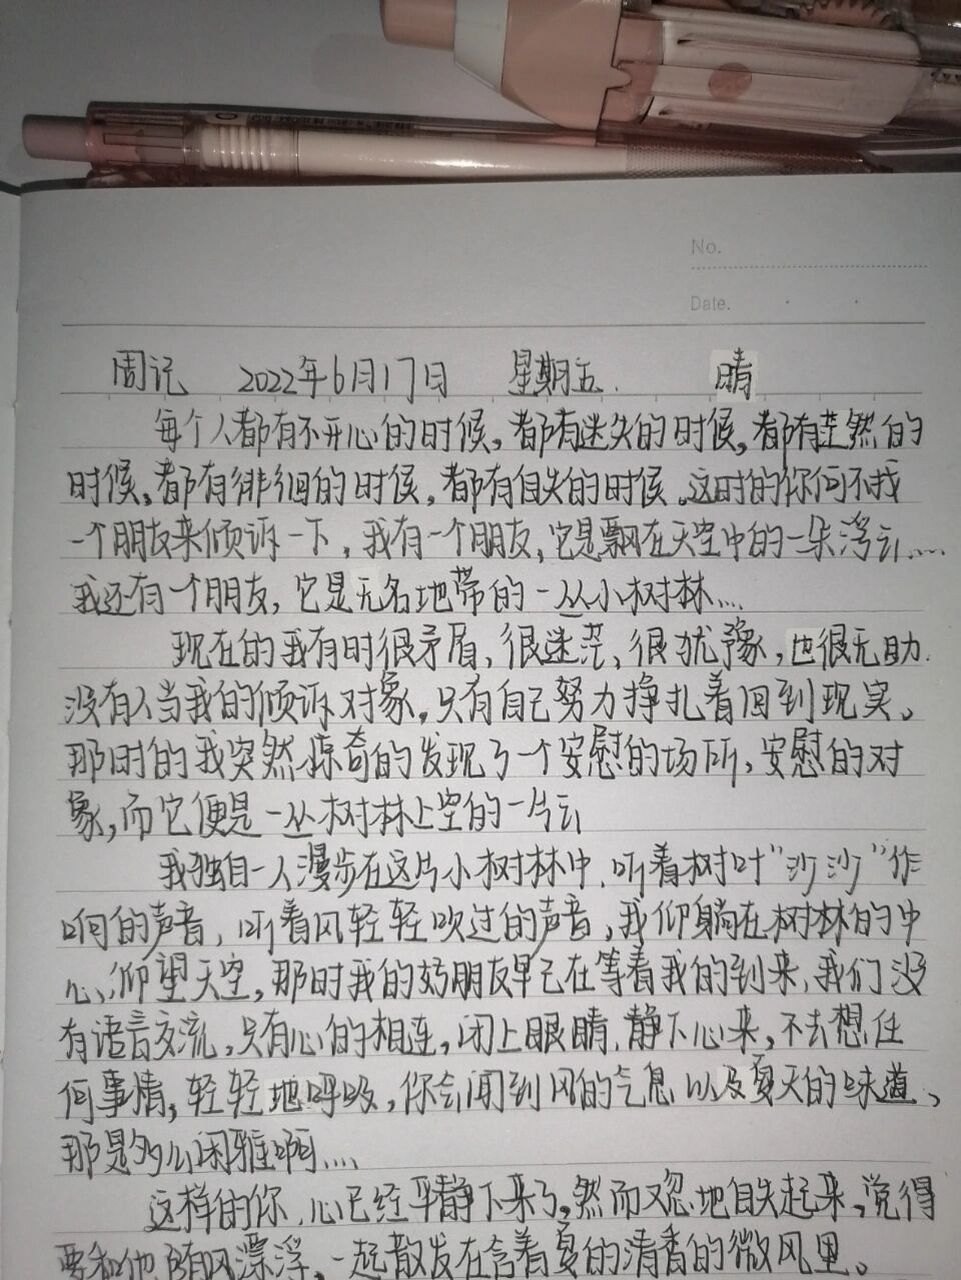 No.
Date.
周记 2022年6月17日 星期五. 晴
每个人都有不开心的时候，都有迷失的时候，都有茫然的
时候、都有徘徊的时候，都有自失的时候。这时的你何不找
一个朋友来倾诉一下，我有一个朋友，它是飘在天空中的一朵浮云……
我还有一个朋友，它是无名地带的一丛小树林…
现在的我有时很矛盾、很迷茫、很犹豫，也很无助.
没有人当我的倾诉对象，只有自己努力挣扎着回到现实。
那时的我突然惊奇的发现了一个安慰的场所，安慰的对
象，而它便是一丛树林上空的一片云
我独自一人漫步在这片小树林中，听着树叶“沙沙”作
响的声音，听着风轻轻吹过的声音，我仰躺在树林的中
心，仰望天空，那时我的好朋友早已在等着我的到来，我们没
有语言交流，只有心的相连，闭上眼睛，静下心来，不去想任
何事情，轻轻地呼吸，你会闻到风的气息以及夏天的味道、
那是多么闲雅啊……
这样的你，心已经平静下来了，然而又忽地自失起来，觉得
要和他随风漂浮，一起散发在含着夏的清香的微风里。